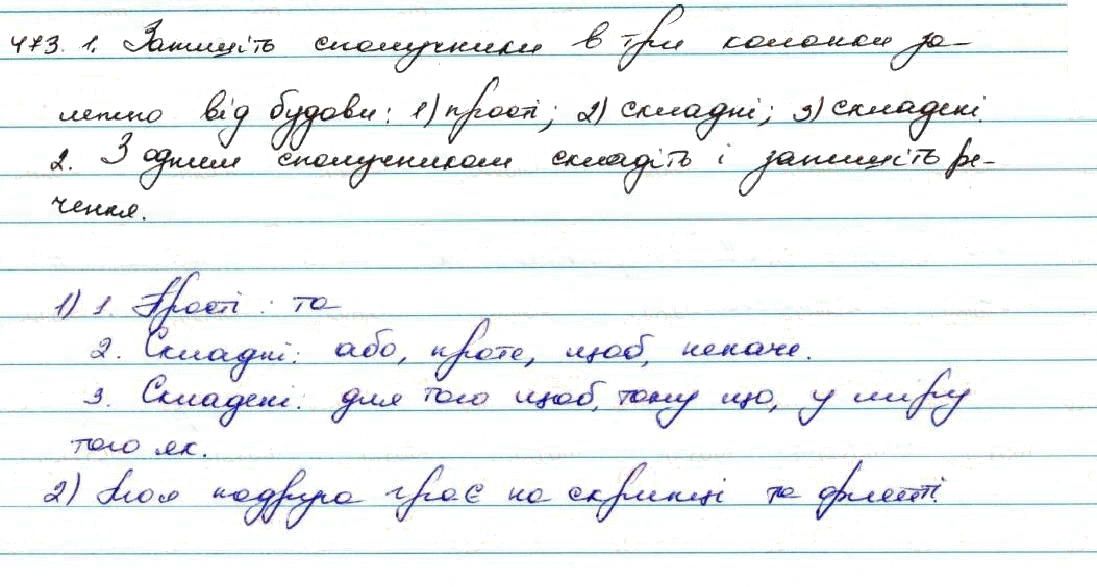 473. 1. Запишіть сполучники в три колонки за-
лежно від будови: 1) прості; 2) складні; 3) складені.
2. З одним сполучником складіть і запишіть ре-
чення.
1) 1. Прості: та
2. Складні: або, проте, щоб, неначе.
3. Складені: для того щоб, тому що, у міру
того як.
2) Моя подруга грає на скрипці та флейті.